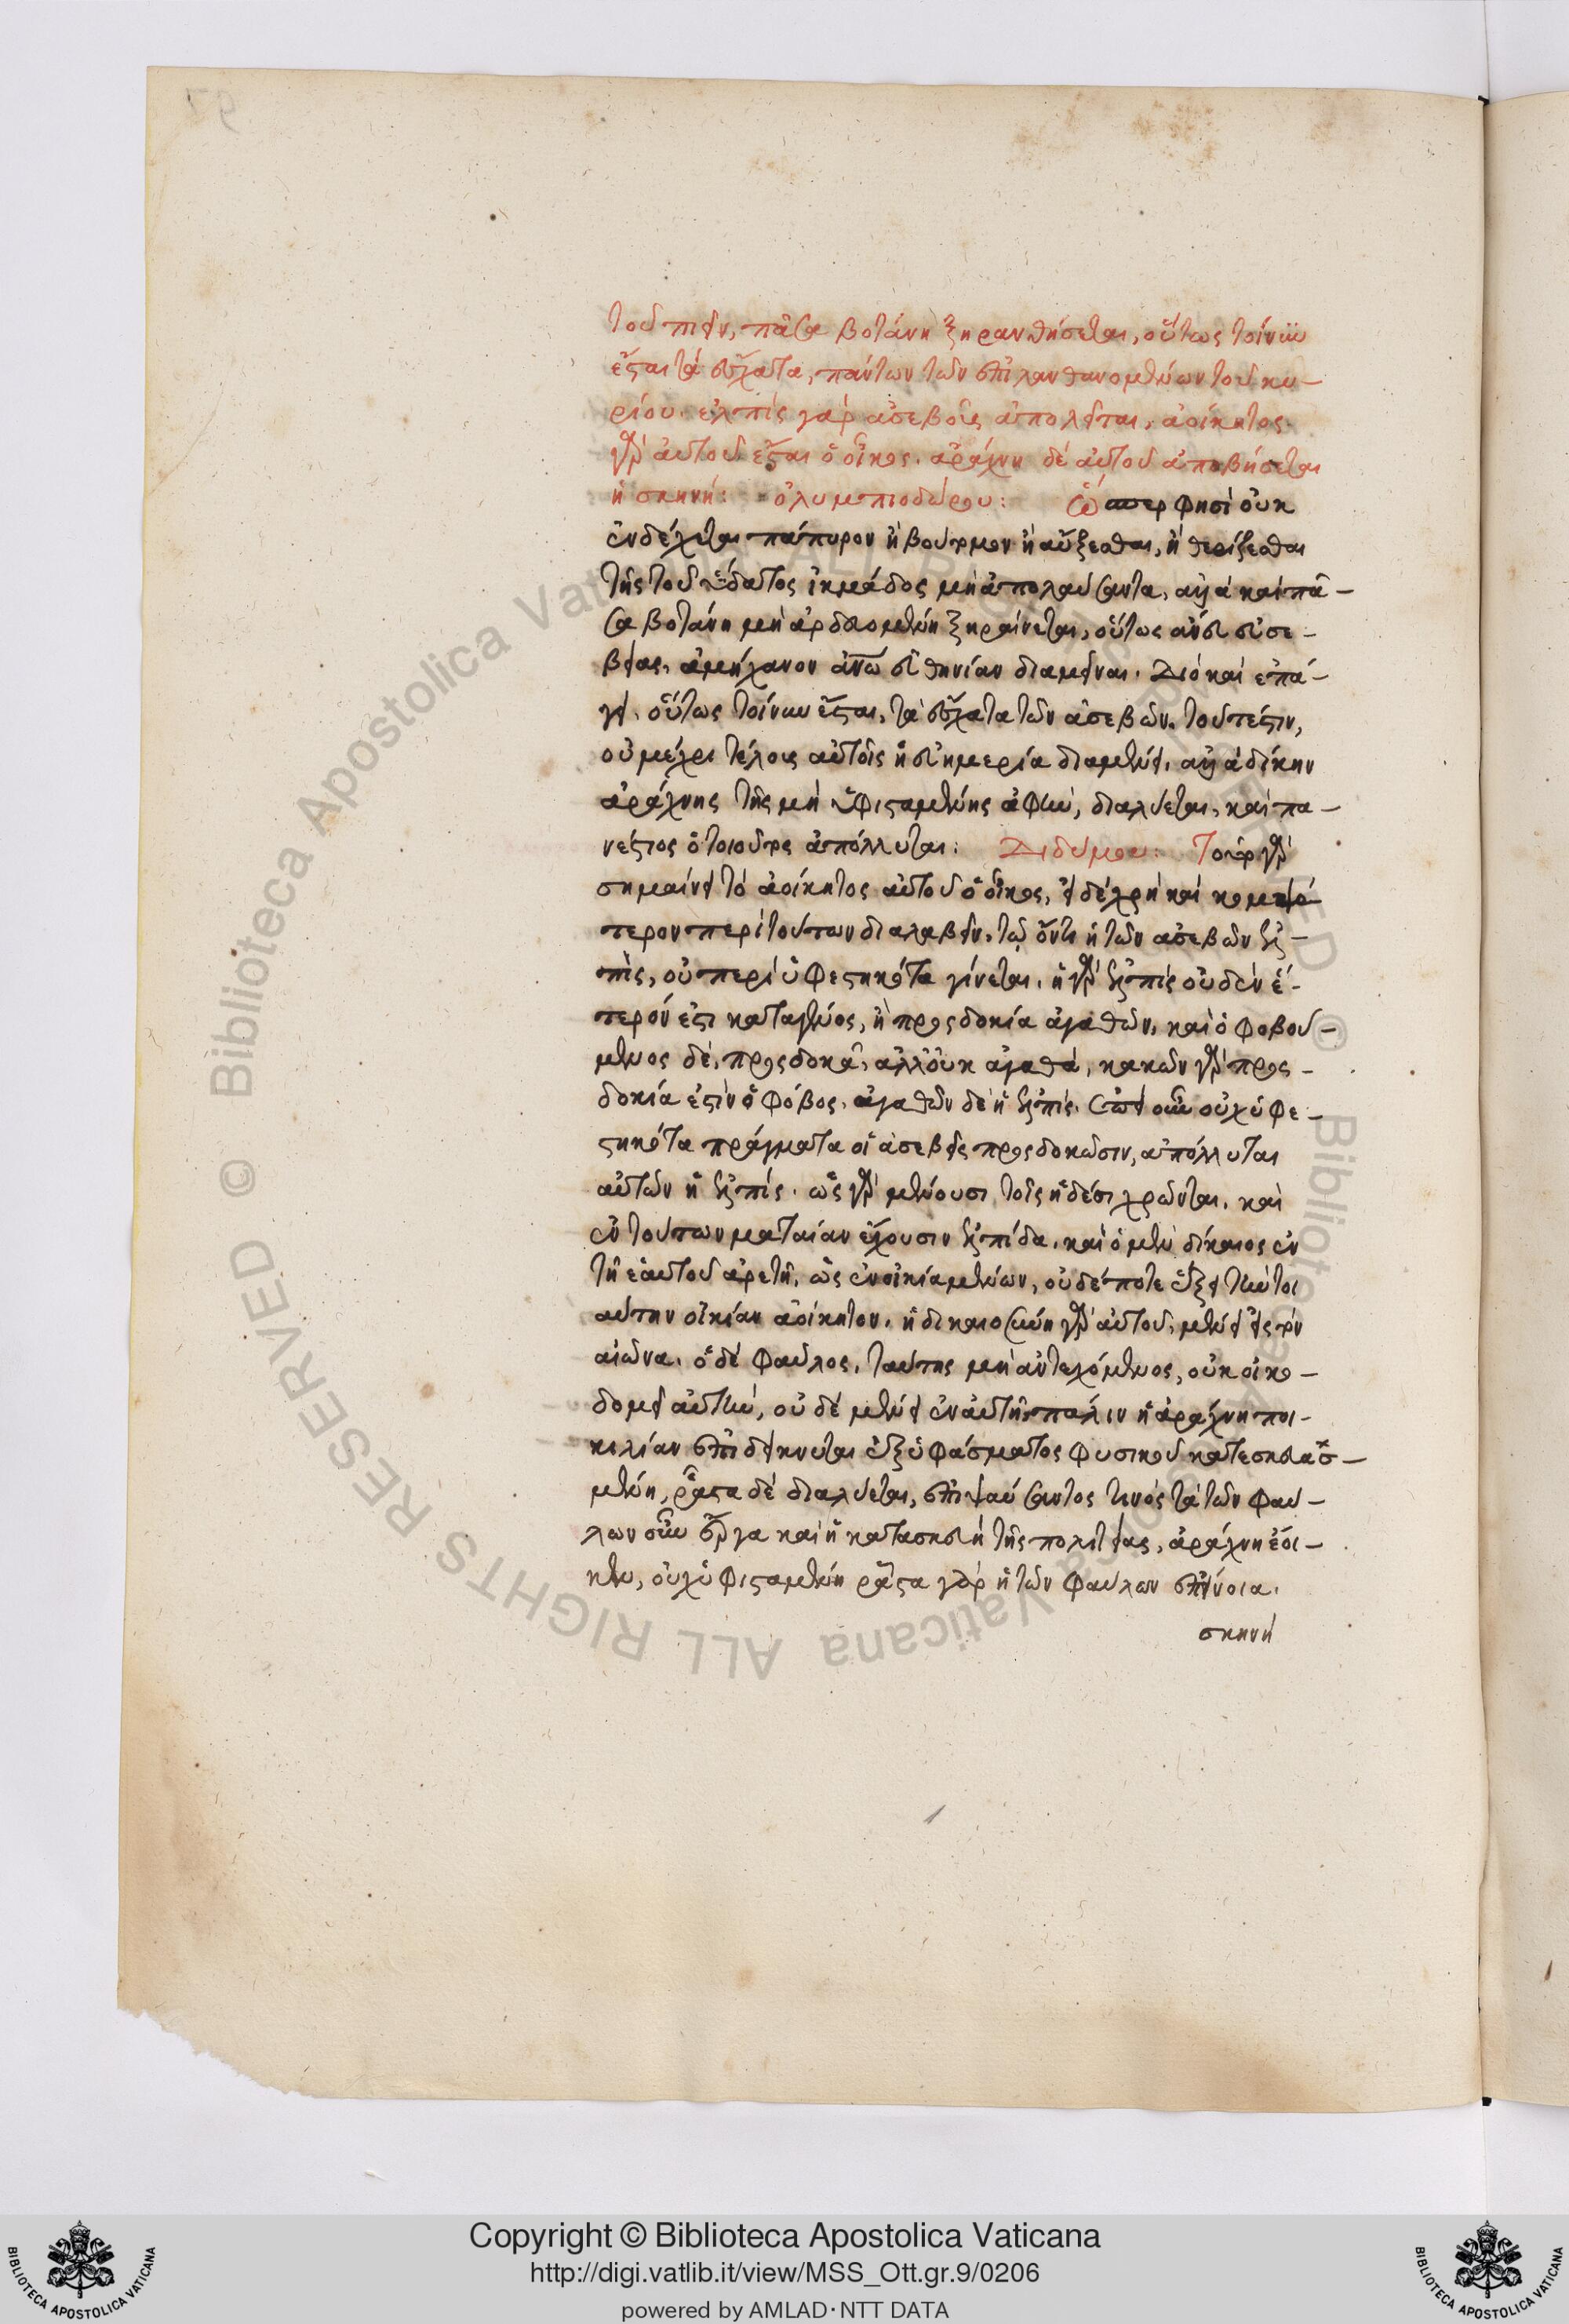 τοῦ πιεῖν, πᾶσα βοτάνη ξηρανθήσεται, οὕτως τοίνυν
ἔσται τὰ ἔσχατα, πάντων τῶν ἐπιλανθανομένων τοῦ κυ-
ρίου. ἐλπὶς γὰρ ἀσεβοῦς ἀπολεῖται, ἀοίκητος
γὰρ αὐτοῦ ἔσται ὁ οἶκος. ἀράχνη δὲ αὐτοῦ ἀποβήσεται
ἡ σκηνή: ὀλυμπιοδώρου: ὥσπερ φησὶ οὐκ
ἐνδέχεται πάπυρον ἢ βούτομον ἢ αὔξεσθαι, ἢ
τῆς τοῦ ὕδατος ἰκμάδος μὴ ἀπολαύσαντα, ἀλλὰ καὶ πᾶ-
σα βοτάνη μὴ ἀρδευομένη ξηραίνεται, οὕτως ἄνευ εὐσε-
βείας, ἀμήχανον ἀνθρώπων εὐθηνίαν διαμεῖναι. Διὸ καὶ ἐπά-
γει. οὕτως τοίνυν ἔσται, τὰ ἔσχατα τῶν ἀσεβῶν. τουτέστιν,
οὐ μέχρι τέλους αὐτοῖς ἡ εὐημερία διαμένει. ἀλλὰ δίκην
ἀράχνης τῆς μὴ ὑφισταμένης ἀφὴν, διαλύεται, καὶ πα-
νέστιος ὁ τοιοῦτος ἀπόλλυται: Διδύμου: Τὸ αὐτὸ γὰρ
σημαίνει τὸ ἀοίκητος αὐτοῦ ὁ οἶκος, εἰ δὲ χρὴ καὶ κομψό
τερον περὶ τούτων διαλαβεῖν, τῷ ὄντι ἡ τῶν ἀσεβῶν ἐλ-
πὶς, οὐ περὶ ὑφεστηκότα γίνεται. ἡ γὰρ ἐλπὶς οὐδὲν ἕ-
τερόν ἐστι κατὰ γένος, ἢ προσδοκία ἀγαθῶν, καὶ ὁ φοβού-
μενος δὲ, προσδοκᾷ, ἀλλ' οὐκ ἀγαθά, κακῶν γὰρ προσ-
δοκία ἐστὶν ὁ φόβος, ἀγαθῶν δὲ ἡ ἐλπίς. οὖν οὐχ ὑφε-
στηκότα πράγματα οἱ ἀσεβεῖς προσδοκῶσιν, ἀπόλλυται
αὐτῶν ἡ ἐλπίς. ὡς γὰρ μένουσι τοῖς ἡδέσι χρῶνται. καὶ
ἐν τούτων ματαίαν ἔχουσιν ἐλπίδα. καὶ ὁ μὲν δίκαιος ἐν
τῇ ἑαυτοῦ ἀρετῇ, ὡς ἐν οἰκία μένων, οὐδέποτε ἕξει τὴν τοι
αύτην οἰκίαν ἀοίκητον. ἡ δικαιοσύνη γὰρ αὐτοῦ, μένει εἰς τὸν
αἰῶνα. ὁ δὲ φαῦλος, ταύτης μὴ ἀντεχόμενος, οὐκ οἰκο-
δομεῖ αὐτὴν, οὐδὲ μένει ἐν αὐτῇ πάλιν ἡ ἀράχνη ποι-
κιλίαν ἐπιδείκνυται ἐξ ὑφάσματος φυσικοῦ κατεσκευασ-
μένη, ῥᾷστα δὲ διαλύεται, ἐπιψαύσαντος τινὸς τὰ τῶν φαύ-
λων οὖν ἔργα καὶ ἡ κατασκευὴ τῆς πολιτείας, ἀράχνη ἔοι-
κεν, οὐχ ὑφισταμένη ῥᾷστα γὰρ ἡ τῶν φαύλων ἐπίνοια.
σκηνὴ
Copyright © Biblioteca Apostolica Vaticana
http://digi.vatlib.it/view/MSS_Ott.gr.9/0206
powered by AMLAD·NTT DATA
BIBLIOTECA APOSTOLICA VATICANA
BIBLIOTECA APOSTOLICA VATICANA